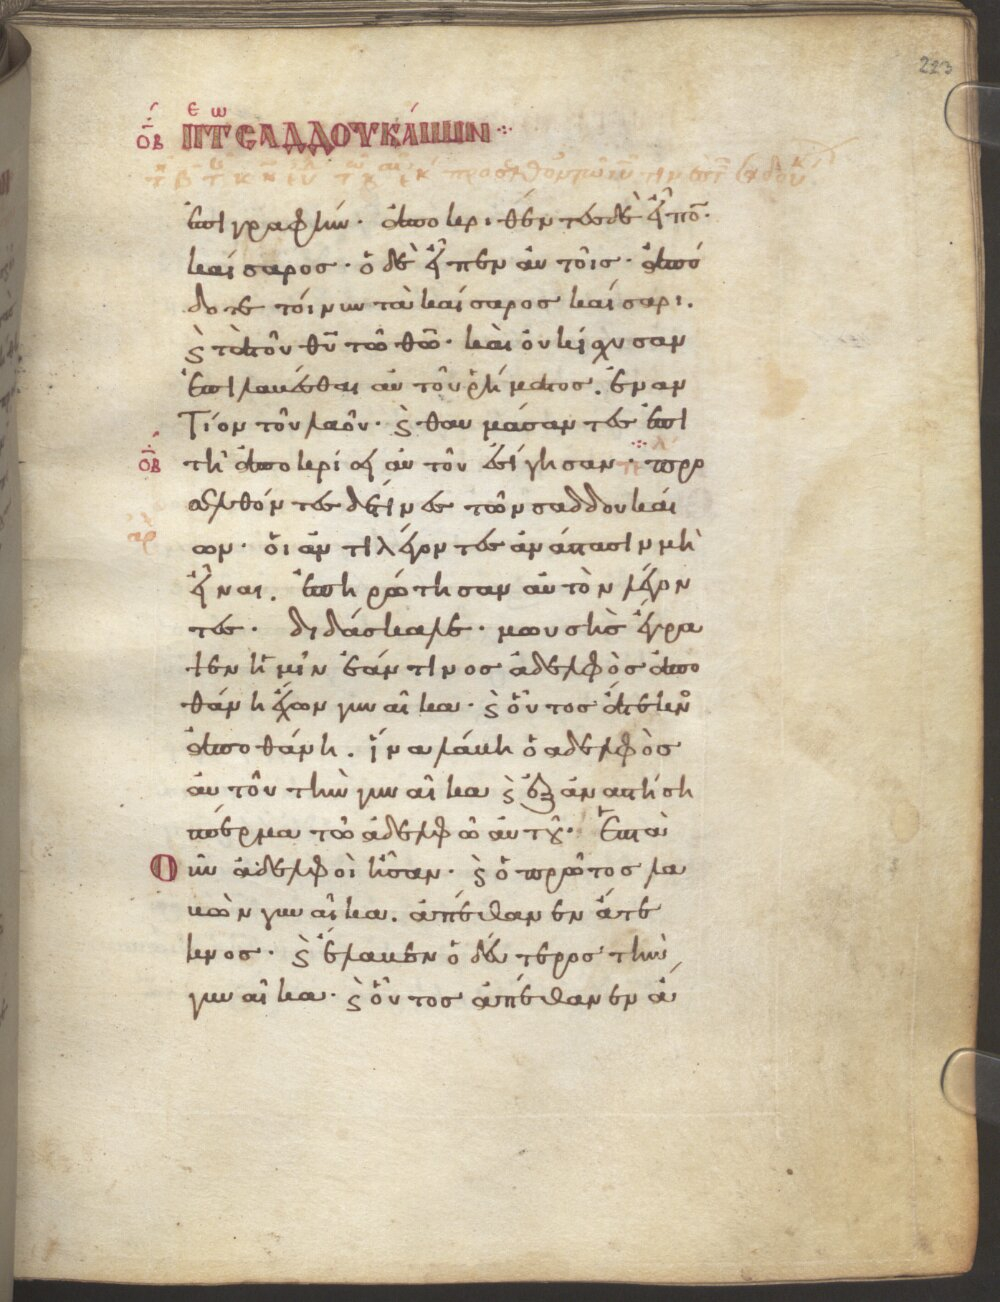 223
ο̅β̅ πε τω σαδδουκαίων
ἐπιγραφήν· ἀποκριθέντες δὲ εἶπο̅·
καίσαρος· ὁ δὲ εἶπεν αὐτοῖς· ἀπό
δοτε τοίνυν τὰ καίσαρος καίσαρι.
ϛ τὰ τοῦ θ̅υ̅ τῶ θ̅ω̅· καὶ οὐκ ἴσχυσαν
ἐπιλαβέσθαι αὐτοῦ ῥήματος. ἐναν
τίον τοῦ λαοῦ· ϛ θαυμάσαντες ἐπὶ
τῆ ἀποκρίσει αὐτοῦ ἐσίγησαν· προ
ο̅β̅
σελθόντες δέ τινες τῶν σαδδουκαί
ων· οἱ ἀντιλέγοντες ἀνάστασιν μὴ
εἶναι. ἐπηρώτησαν αὐτὸν λέγον
τες· διδάσκαλε· μωυσῆς ἔγρα
ψεν ἡμῖν ἐάν τινος ἀδελφὸς ἀπο
θάνη ἔχων γυναῖκα· ϛ οὗτος ἄτεκνος
ἀποθάνη. ἵνα λάβη ὁ ἀδελφὸς
αὐτοῦ τὴν γυναῖκα ϛ ἐξαναστήση
σπέρμα τῶ ἀδελφῶ αὐτοῦ· Ἑπτὰ
οὖν ἀδελφοὶ ἦσαν· ϛ ὁ πρῶτος λα
βὼν γυναῖκα. ἀπέθανεν ἄτε
κνος· ϛ ἔλαβεν ὁ δεύτερος τὴν
γυναῖκα· ϛ οὗτος ἀπέθανεν ἄ